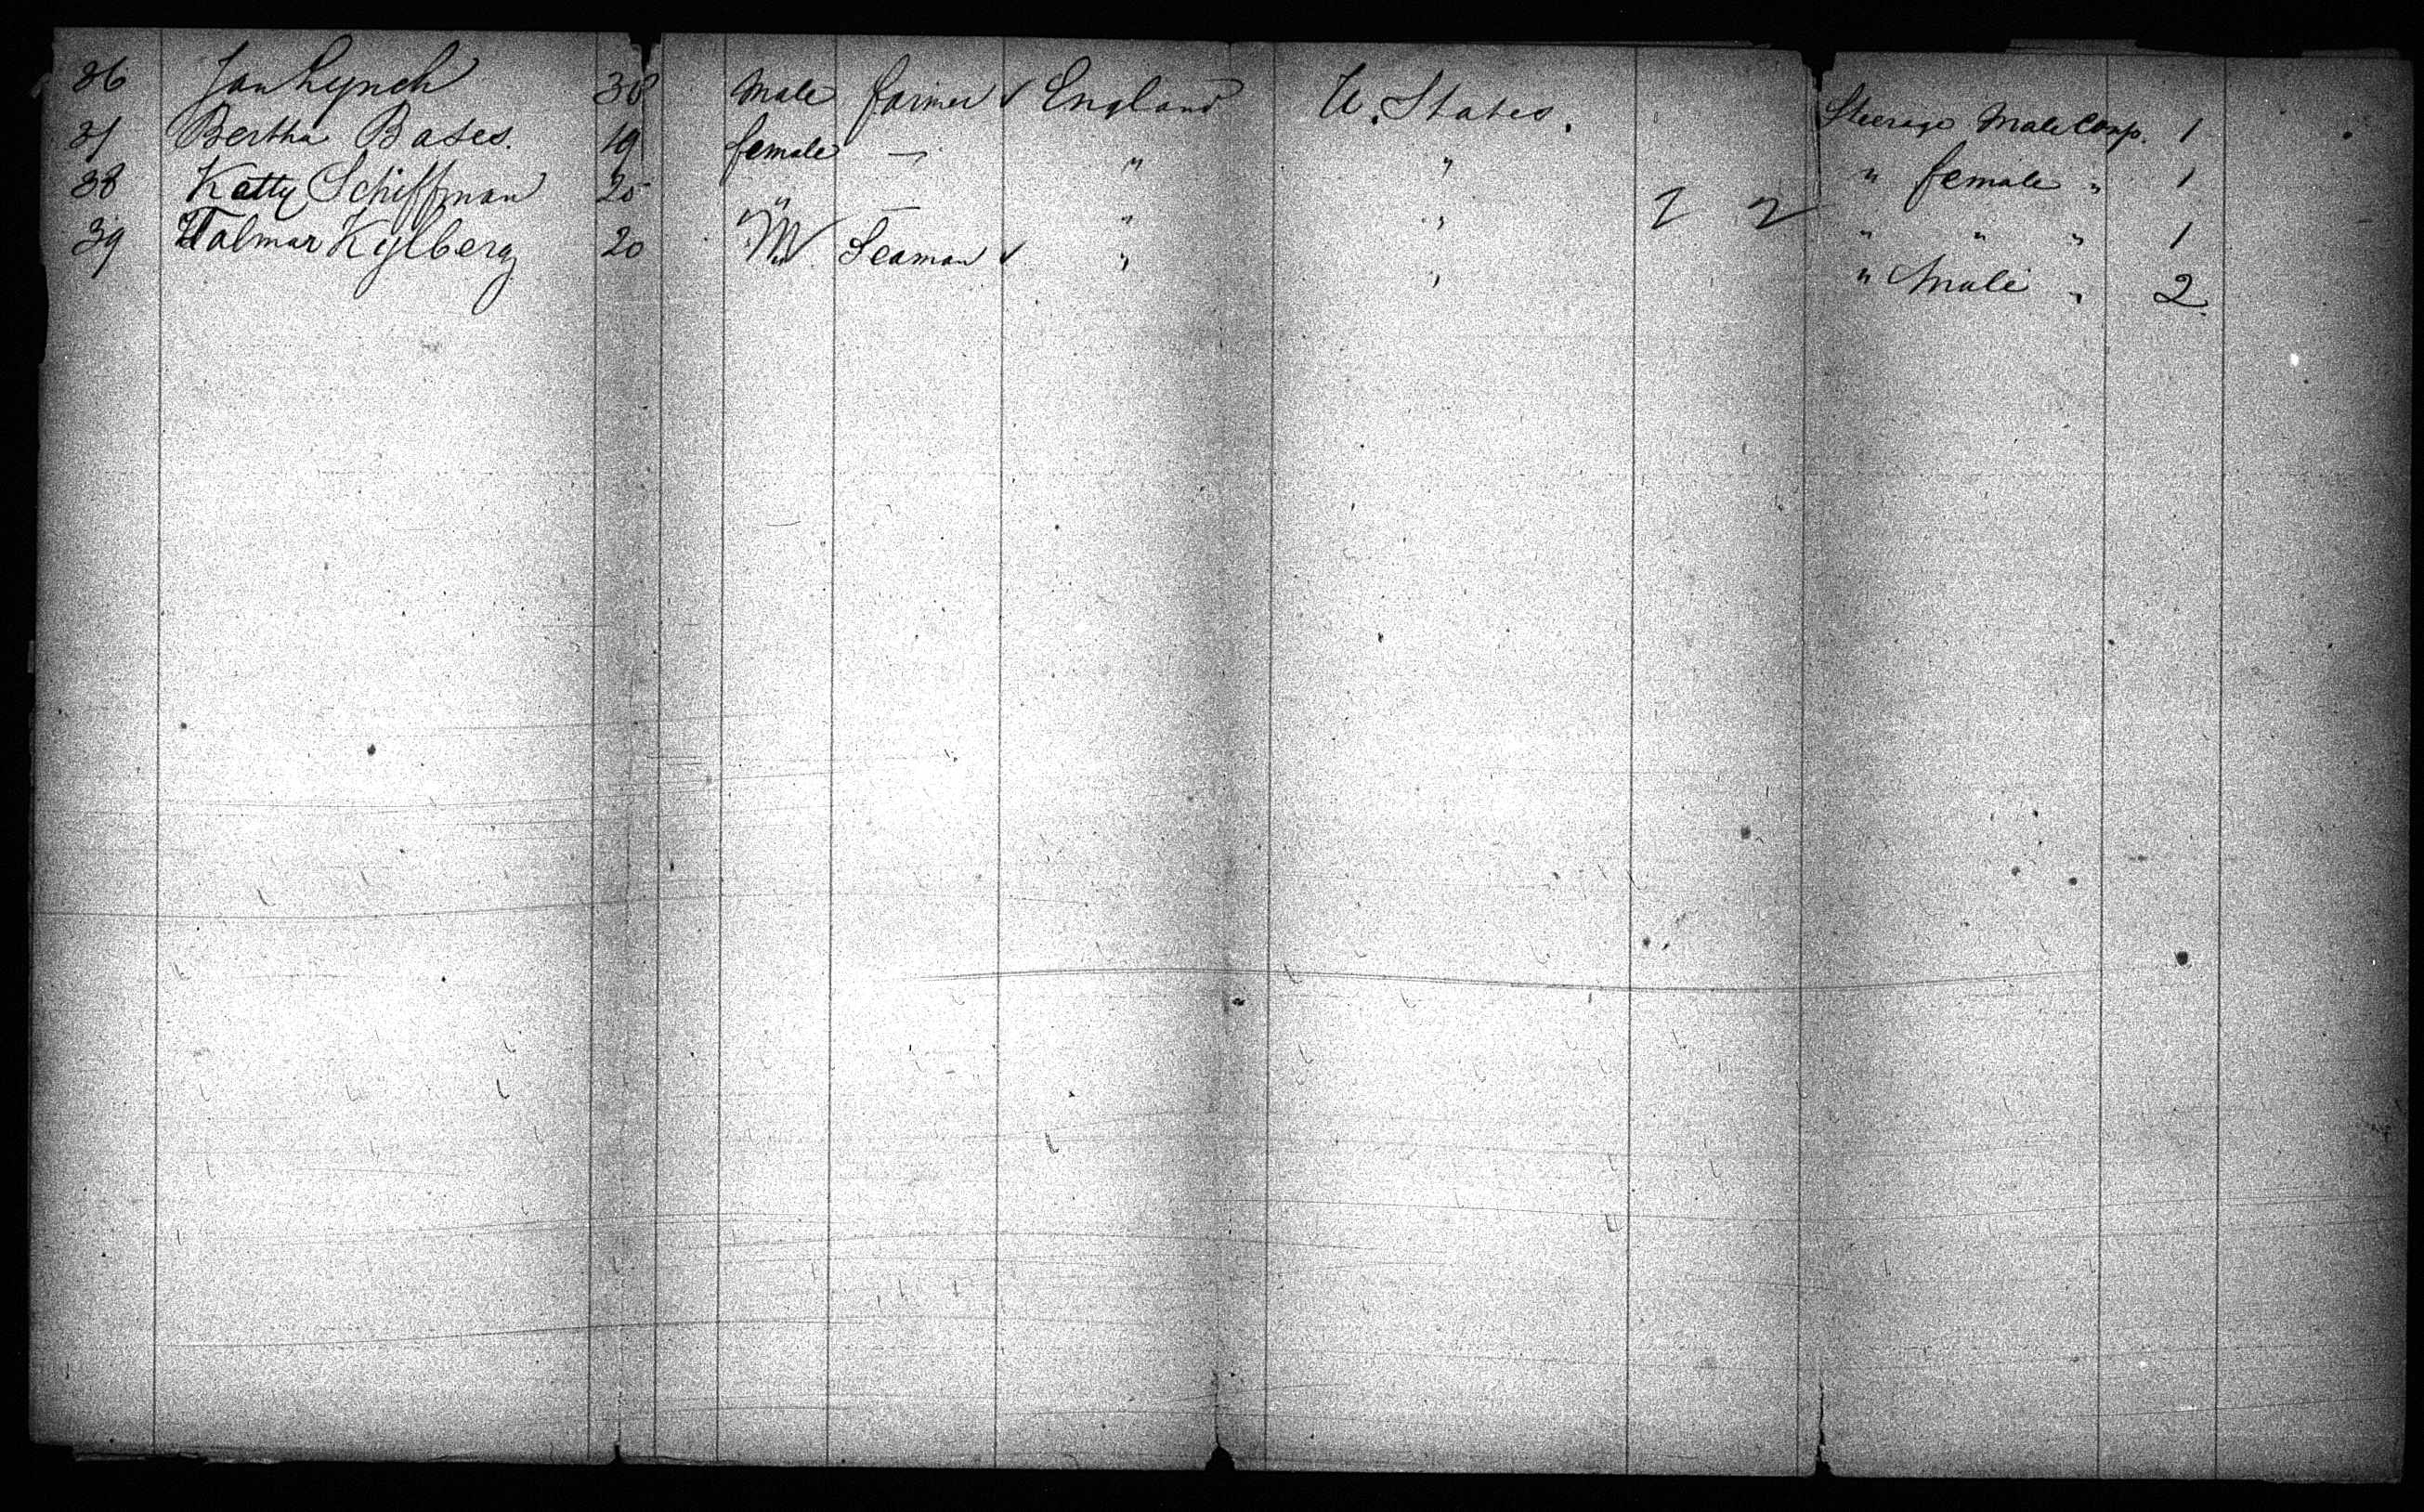 36 Jan Lynch 38 Male farmer ✓ England U. States. Steerage Male Comp. 1
37 Bertha Bates. 19 female — " " " female " 1
38 Katty Schiffman 25 " " — " " 2 2 " " " 1
39 Halmar Kylberg 20 M Seaman ✓ " " " Male " 2